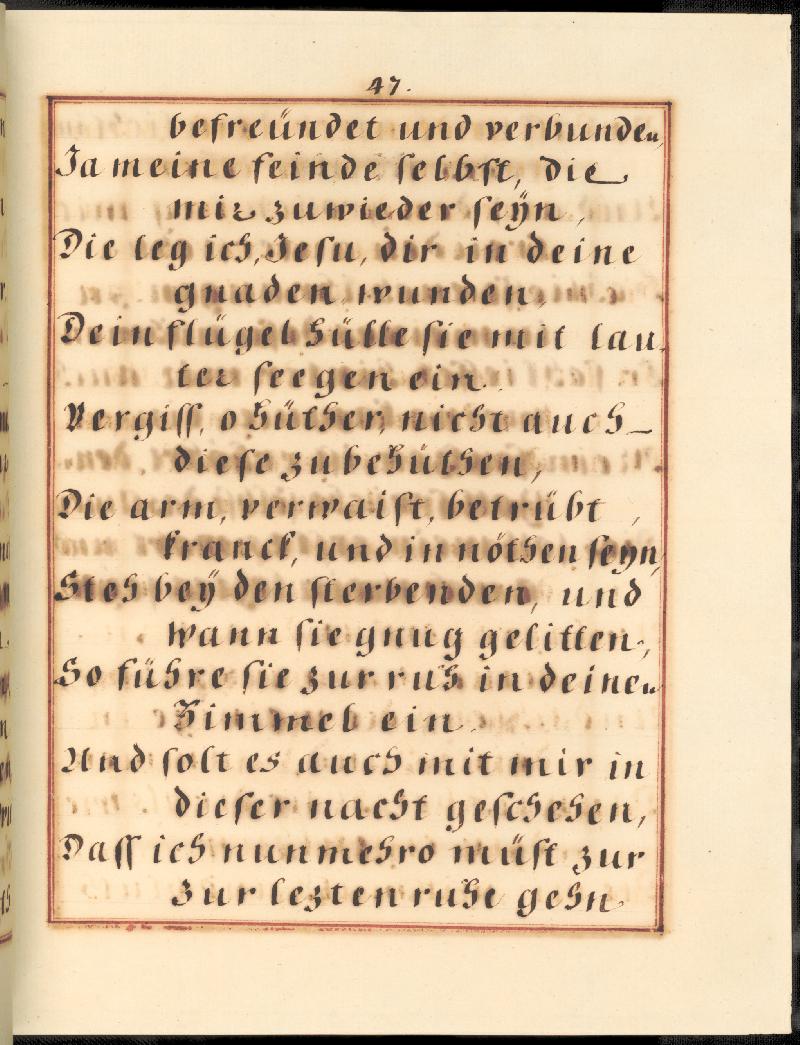 47.
befreündet und verbunden,
Ja meine feinde ſelbſt, die
mir zuwieder ſeÿn,
Die leg ich, Jesu, dir in deine
gnaden wunden,
Dein flügel hülle ſie mit lau,
ter ſeegen ein.
Vergiſſ, o hüther, nicht auch
dieſe zu behüthen,
Die arm, verwaiſt, betrübt,
kranck, und in nöthen ſeyn,
Steh beÿ den ſterbenden, und
wann ſie gnug gelitten,
So führe ſie zur ruh in deinen
Himmel ein.
Und ſolt es auch mit mir in
dieſer nacht geſchehen,
Daſſ ich nunmehro müſt zur
zur lezten ruhe gehn